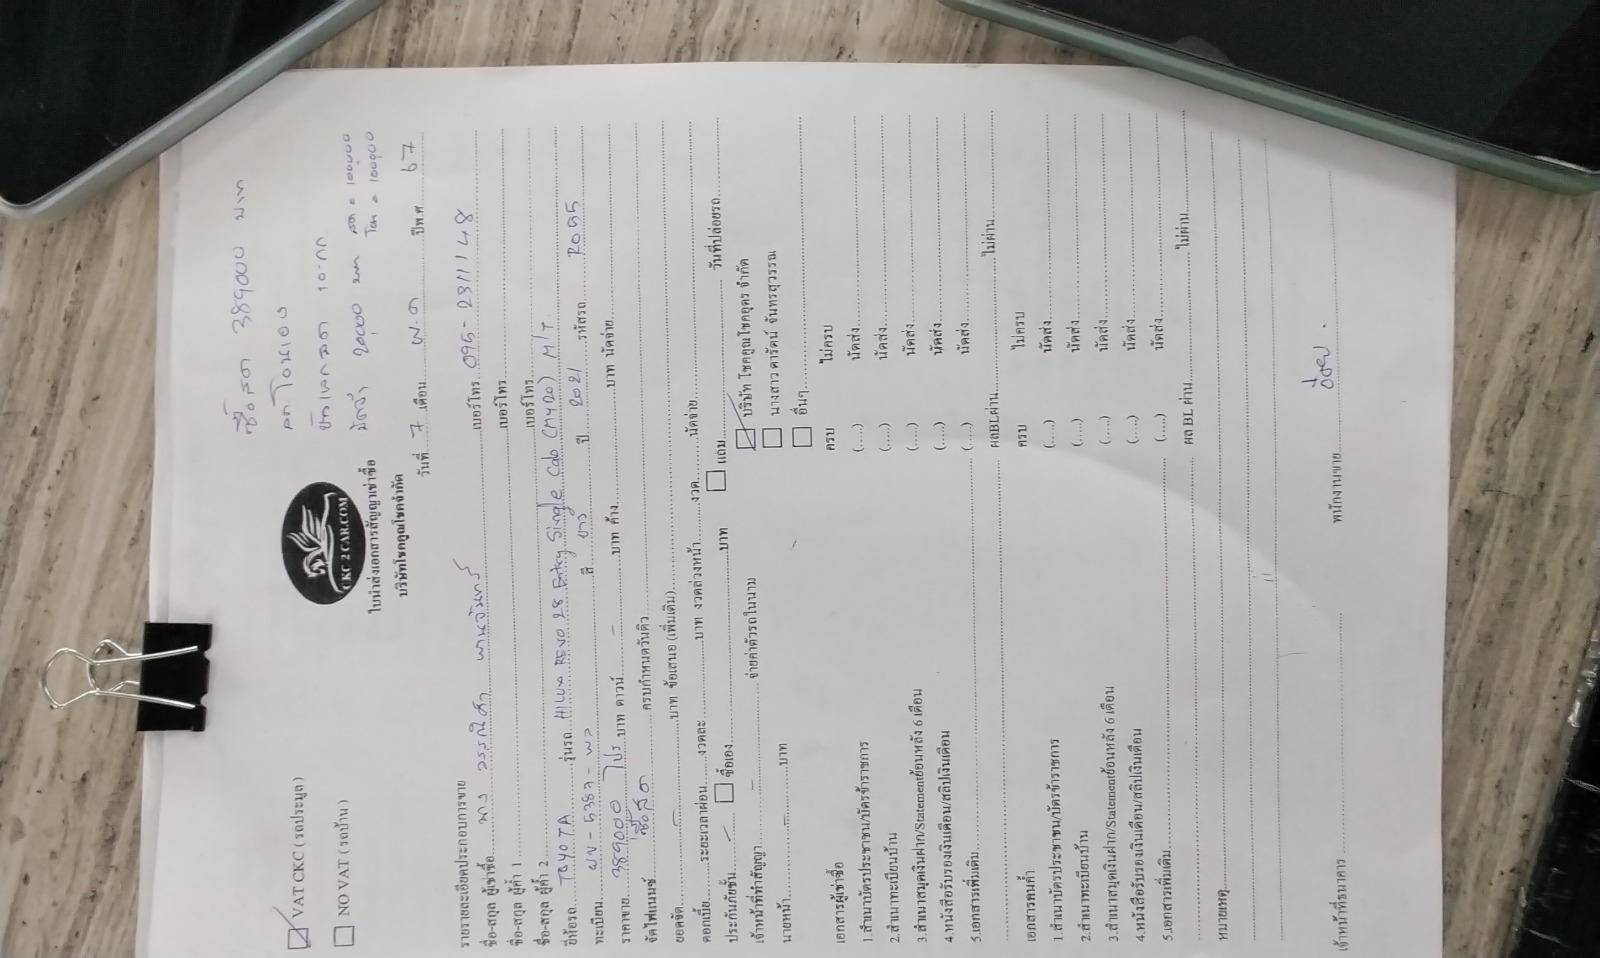 ซื้อสด 389000 บาท
ลด โอนเอง
มัดจำ 20,000 บาท สด = 100,000
โอน = 100,000
☑ VAT CKC (รถประมูล)
☐ NO VAT (รถบ้าน)
CKC 2 CAR.COM
ใบนำส่งเอกสารสัญญาเช่าซื้อ
บริษัทโชคคูณโชคจำกัด
วันที่ 7 เดือน พ.ค ปีพ.ศ. 67
รายรายละเอียดประกอบการขาย
ชื่อ-สกุล ผู้เช่าซื้อ นาง วรรณิศา เบอร์โทร. 095-2311148
ชื่อ-สกุล ผู้ค้ำ 1 เบอร์โทร
ชื่อ-สกุล ผู้ค้ำ 2 เบอร์โทร
ยี่ห้อรถ TOYOTA รุ่นรถ HILUX REVO 2.8 Entry Single Cab (MY20) M/T
ทะเบียน 5387 สี ขาว ปี 2021 รหัสรถ R095
ราคาขาย 389000 โปร บาท ดาวน์ - บาท ค้าง บาท นัดจ่าย
จัดไฟแนนซ์ ซื้อสด ครบกำหนดวันคิว
ยอดจัด - บาท ข้อเสนอ (เพิ่มเติม)
ดอกเบี้ย ระยะเวลาผ่อน งวดละ บาท งวดล่วงหน้า งวด นัดจ่าย
ประกันภัยชั้น - ☐ ซื้อเอง บาท ☐ แถม วันที่ปล่อยรถ
เจ้าหน้าที่ทำสัญญา - จ่ายค่าตัวรถในนาม ☑ บริษัท โชคคูณโชคอุดร จำกัด
☐ นางสาว ดารัตน์ จันทรสุวรรณ
นายหน้า - บาท ☐ อื่นๆ
เอกสารผู้เช่าซื้อ ครบ ไม่ครบ
1.สำเนาบัตรประชาชน/บัตรข้าราชการ (....) นัดส่ง
2.สำเนาทะเบียนบ้าน (....) นัดส่ง
3.สำเนาสมุดเงินฝาก/Statementย้อนหลัง 6 เดือน (....) นัดส่ง
4.หนังสือรับรองเงินเดือน/สลิปเงินเดือน (....) นัดส่ง
5.เอกสารเพิ่มเติม (....) นัดส่ง
ผลBLผ่าน ไม่ผ่าน
เอกสารคนค้ำ ครบ ไม่ครบ
1.สำเนาบัตรประชาชน/บัตรข้าราชการ (....) นัดส่ง
2.สำเนาทะเบียนบ้าน (....) นัดส่ง
3.สำเนาสมุดเงินฝาก/Statementย้อนหลัง 6 เดือน (....) นัดส่ง
4.หนังสือรับรองเงินเดือน/สลิปเงินเดือน (....) นัดส่ง
5.เอกสารเพิ่มเติม (....) นัดส่ง
ผล BL ผ่าน ไม่ผ่าน
หมายเหตุ
เจ้าหน้าที่ธนาคาร พนักงานขาย